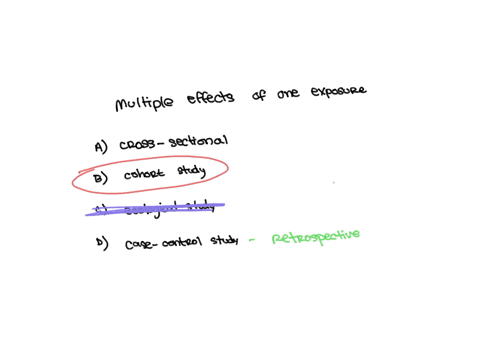 Multiple effects of one exposure
A) cross-sectional
B) cohort study
C) ecological study
D) case-control study - Retrospective